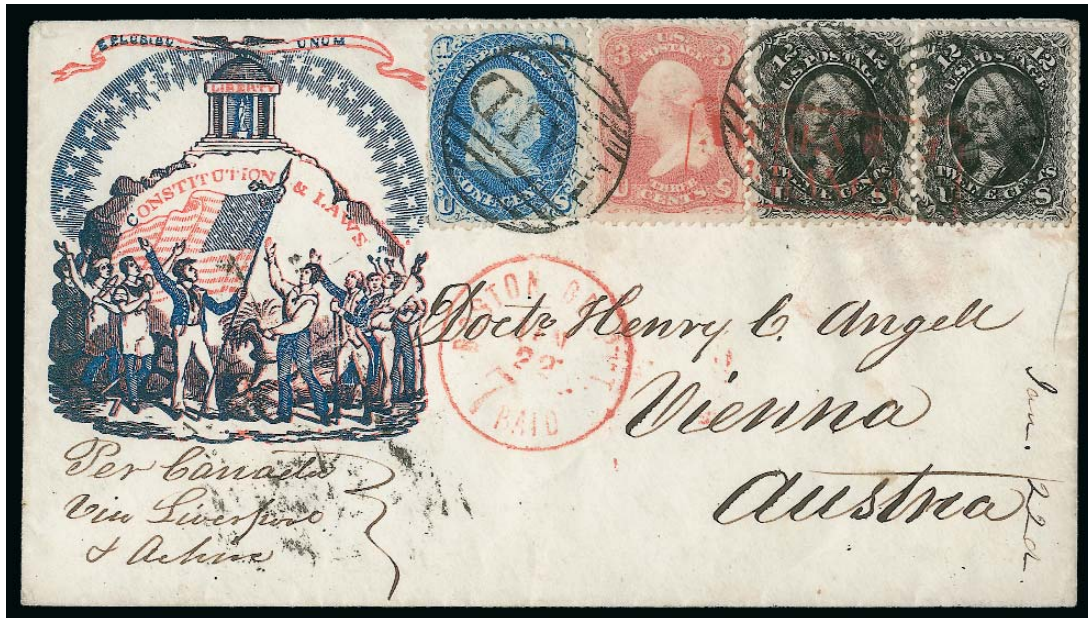 E PLURIBUS UNUM
LIBERTY
CONSTITUTION & LAWS
1 1
U ONE CENT S
3 U.S. 3
POSTAGE
U THREE S
CENTS
12 12
U.S. POSTAGE
U TWELVE CENTS S
12 12
U.S. POSTAGE
U TWELVE CENTS S
PD
BOSTON
22
PAID
Doctr Henry C. Angell
Vienna
Austria
Jan. 22d.
Per Canada
Via Liverpool
& Achen